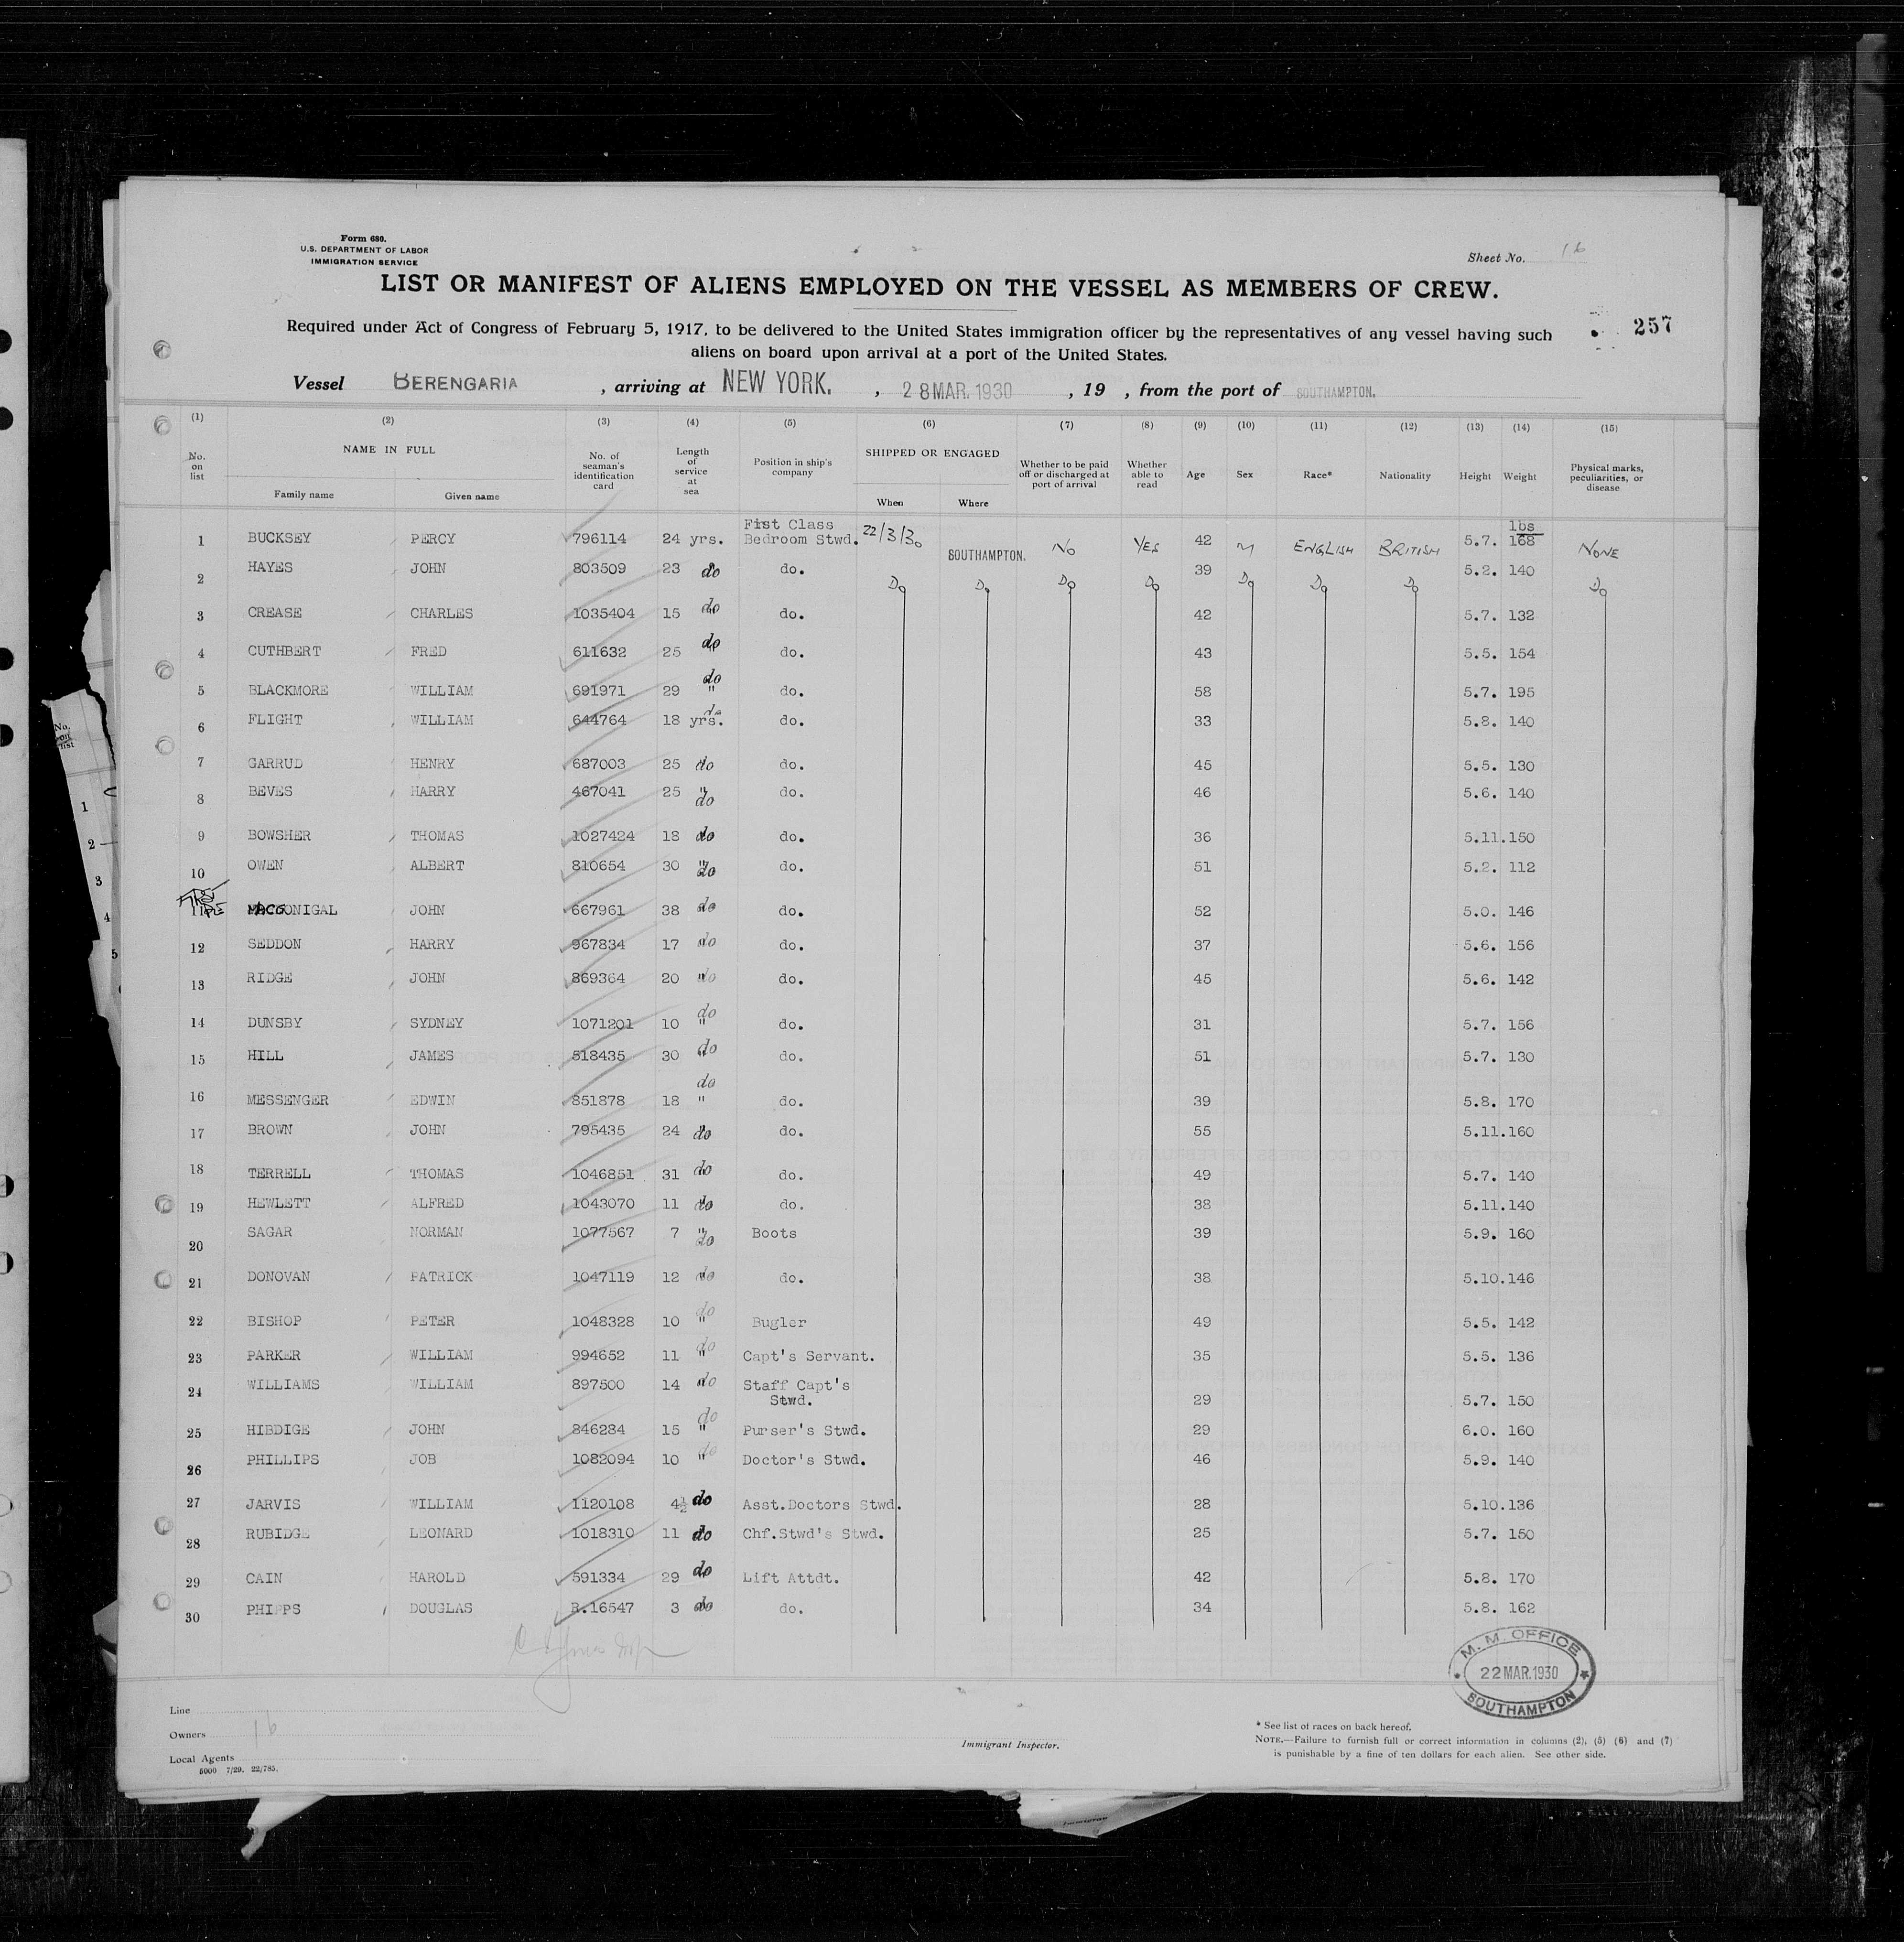 Form 680.
U.S. DEPARTMENT OF LABOR
IMMIGRATION SERVICE
Sheet No. 16
LIST OR MANIFEST OF ALIENS EMPLOYED ON THE VESSEL AS MEMBERS OF CREW.
257
Required under Act of Congress of February 5, 1917, to be delivered to the United States immigration officer by the representatives of any vessel having such
aliens on board upon arrival at a port of the United States.
Vessel BERENGARIA , arriving at NEW YORK. , 28 MAR. 1930 , 19 , from the port of SOUTHAMPTON.
(1) (2) (3) (4) (5) (6) (7) (8) (9) (10) (11) (12) (13) (14) (15)
No. on list NAME IN FULL Family name Given name No. of seaman's identification card Length of service at sea Position in ship's company SHIPPED OR ENGAGED When Where Whether to be paid off or discharged at port of arrival Whether able to read Age Sex Race* Nationality Height Weight Physical marks, peculiarities, or disease
1 BUCKSEY PERCY 796114 24 yrs. Fist Class Bedroom Stwd. 22/3/30 SOUTHAMPTON. No YES 42 M ENGLISH BRITISH 5.7. lbs 168 NONE
2 HAYES JOHN 803509 23 do do. Do Do Do Do 39 Do Do Do 5.2. 140 Do
3 CREASE CHARLES 1035404 15 do do. 42 5.7. 132
4 CUTHBERT FRED 611632 25 do do. 43 5.5. 154
5 BLACKMORE WILLIAM 691971 29 do " do. 58 5.7. 195
6 FLIGHT WILLIAM 644764 18 yrs. do do. 33 5.8. 140
7 GARRUD HENRY 687003 25 do do. 45 5.5. 130
8 BEVES HARRY 467041 25 " do do. 46 5.6. 140
9 BOWSHER THOMAS 1027424 18 do do. 36 5.11. 150
10 OWEN ALBERT 810654 30 " do do. 51 5.2. 112
11 MACGONIGAL JOHN 667961 38 do do. 52 5.0. 146
12 SEDDON HARRY 967834 17 do do. 37 5.6. 156
13 RIDGE JOHN 869364 20 do do. 45 5.6. 142
14 DUNSBY SYDNEY 1071201 10 do " do. 31 5.7. 156
15 HILL JAMES 518435 30 do " do. 51 5.7. 130
16 MESSENGER EDWIN 851878 18 do " do. 39 5.8. 170
17 BROWN JOHN 795435 24 do do. 55 5.11. 160
18 TERRELL THOMAS 1046851 31 do do. 49 5.7. 140
19 HEWLETT ALFRED 1043070 11 do do. 38 5.11. 140
20 SAGAR NORMAN 1077567 7 " do Boots 39 5.9. 160
21 DONOVAN PATRICK 1047119 12 do do. 38 5.10. 146
22 BISHOP PETER 1048328 10 do " Bugler 49 5.5. 142
23 PARKER WILLIAM 994652 11 do " Capt's Servant. 35 5.5. 136
24 WILLIAMS WILLIAM 897500 14 do Staff Capt's Stwd. 29 5.7. 150
25 HIBDIGE JOHN 846284 15 do " Purser's Stwd. 29 6.0. 160
26 PHILLIPS JOB 1082094 10 do " Doctor's Stwd. 46 5.9. 140
27 JARVIS WILLIAM 1120108 4½ do Asst.Doctors Stwd. 28 5.10. 136
28 RUBIDGE LEONARD 1018310 11 do Chf.Stwd's Stwd. 25 5.7. 150
29 CAIN HAROLD 591334 29 do Lift Attdt. 42 5.8. 170
30 PHIPPS DOUGLAS R.16547 3 do do. 34 5.8. 162
M. M. OFFICE
22 MAR. 1930
SOUTHAMPTON
Line
Owners 16
Local Agents
5000 7/29. 22/785.
Immigrant Inspector.
* See list of races on back hereof.
NOTE.—Failure to furnish full or correct information in columns (2), (5) (6) and (7)
is punishable by a fine of ten dollars for each alien. See other side.
No. on list
1
2
3
4
5